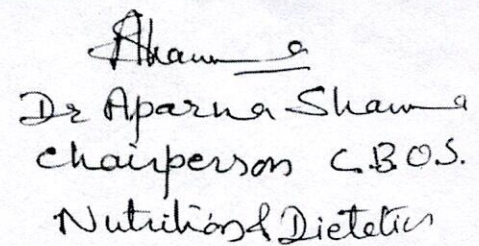 Sharma
Dr Aparna Sharma
Chairperson C.B.O.S.
Nutrition & Dietetics